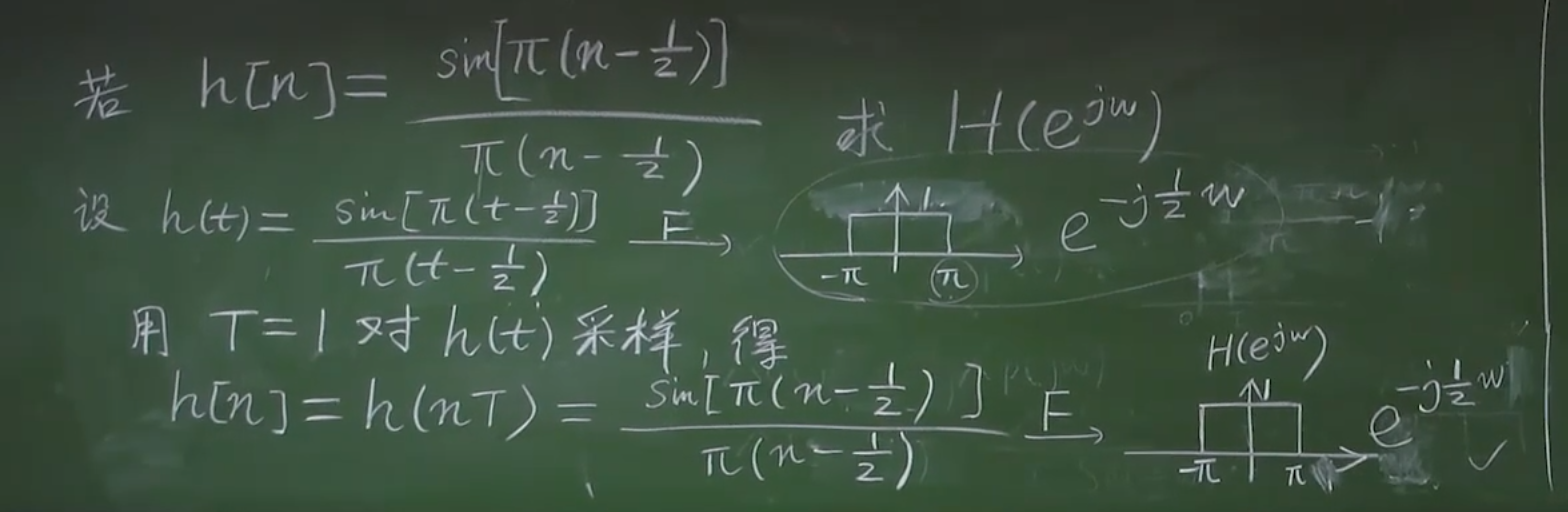 若 h[n] = sin[π(n-1/2)] / π(n-1/2) 求 H(e^{jw})
设 h(t) = sin[π(t-1/2)] / π(t-1/2) F→ 1 -π π e^{-j1/2w}
用 T=1 对 h(t) 采样, 得
H(e^{jw})
h[n] = h(nT) = sin[π(n-1/2)] / π(n-1/2) F→ 1 -π π e^{-j1/2w} ✓